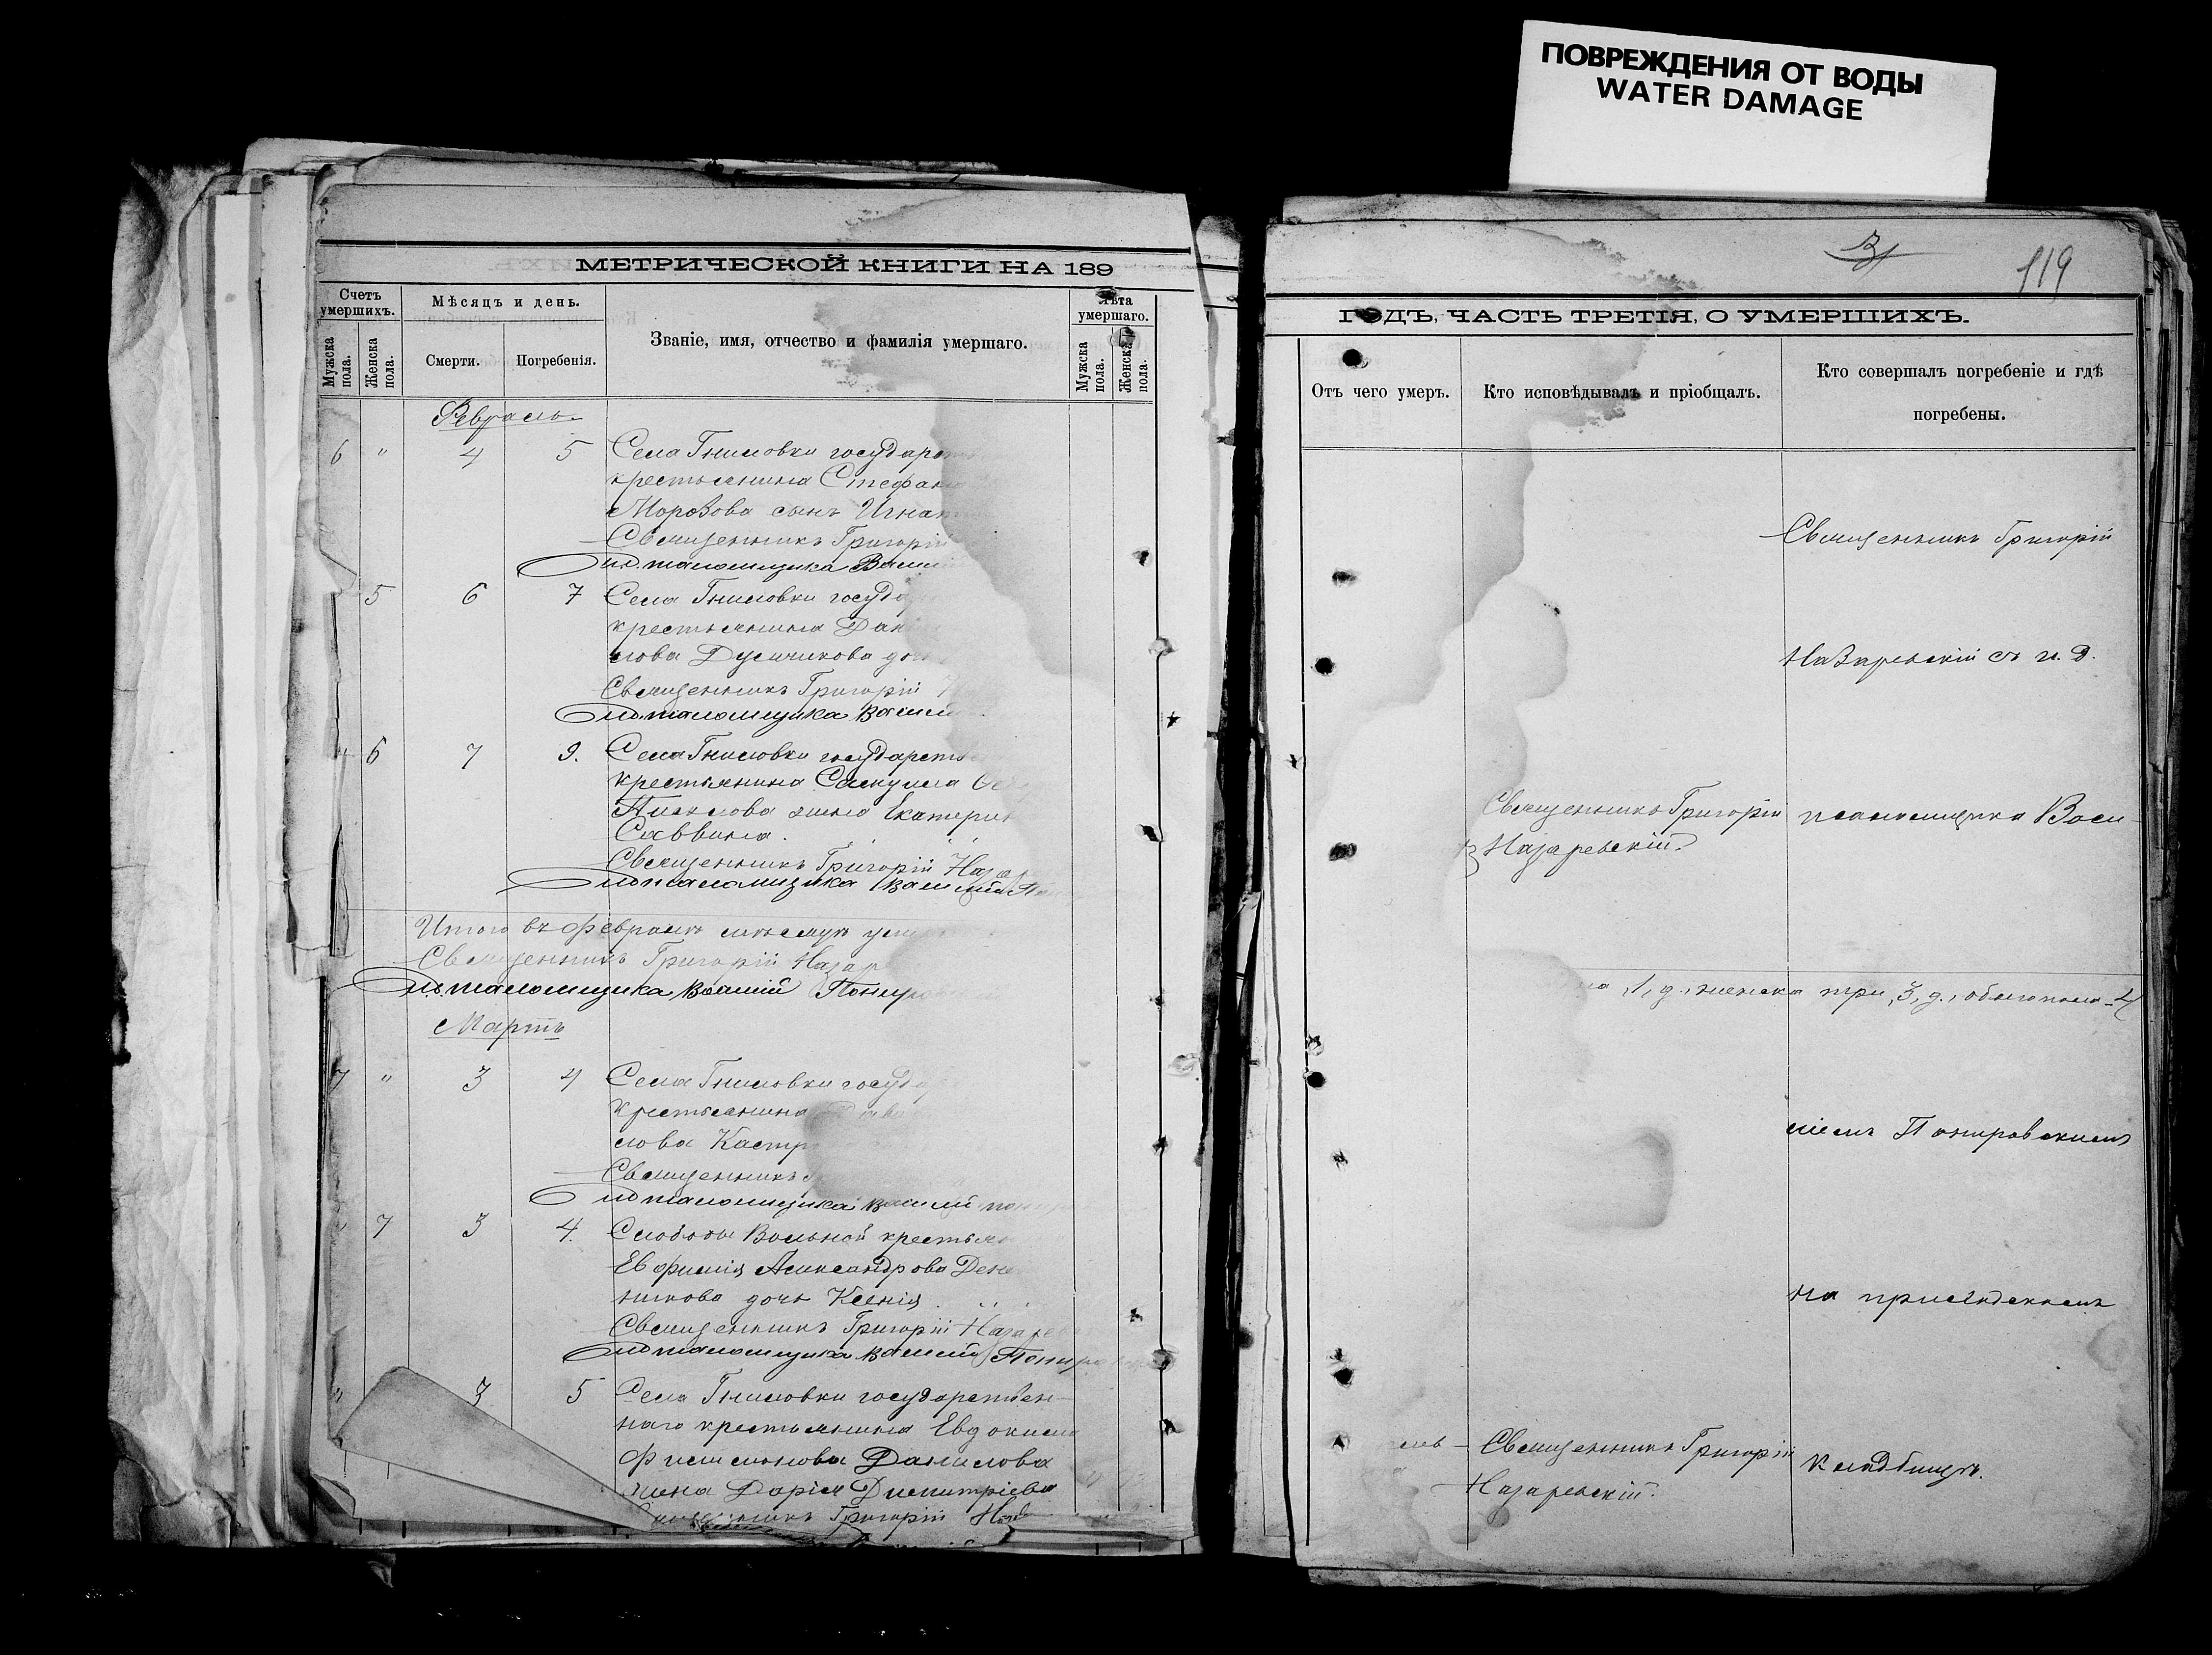 ПОВРЕЖДЕНИЯ ОТ ВОДЫ
WATER DAMAGE
119
МЕТРИЧЕСКОЙ КНИГИ НА 189
Счетъ умершихъ.
Мужска пола.
Женска пола.
Мѣсяцъ и день.
Смерти.
Погребенія.
Званіе, имя, отчество и фамилія умершаго.
Лѣта умершаго.
Мужска пола.
Женска пола.
Февраль
6 " 4 5 Села Гниловки государст
крестьянина Стефана
Морозова сынъ Игнат
Священникъ Григорій
И.д. псаломщика Васил
5 6 7 Села Гниловки госуда
крестьянина Дан
лова дочь
Священникъ Григорій
И.д. псаломщика Васили
" 6 7 9. Села Гниловки государств
крестьянина Самуила
жена Екатерин
Саввина.
Священникъ Григорій Назар
И.д. псаломщика Василій
Итого въ Февралѣ мѣсяцѣ уме
Священникъ Григорій Назар
И.д. псаломщика Василій Понировскій
Мартъ
7 " 3 4 Села Гниловки госуда
крестьянина
лова Кастр
Священникъ
И.д. псаломщика Василій Понир
" 7 3 4. Слободы Вольной крестьян
Евфимія Александрова Дене
никова дочь Ксенія.
Священникъ Григорій Назарев
И.д. псаломщика Василій Пониро
" 3 5 Села Гниловки государствен-
наго крестьянина Евдокима
Филимонова Данилова
жена Дарія Димитріева
Священникъ Григорій Наза
ГОДЪ, ЧАСТЬ ТРЕТІЯ, О УМЕРШИХЪ.
Отъ чего умеръ.
Кто исповѣдывалъ и пріобщалъ.
Кто совершалъ погребеніе и гдѣ погребены.
Священникъ Григорій
Назаревскій съ и. д.
Священникъ Григорій
Назаревскій.
псаломщика Васи-
1, д., женска три, 3, д., обоего пола - 4
ліемъ Понировскимъ
на приходскомъ
Священникъ Григорій
Назаревскій.
кладбищѣ.